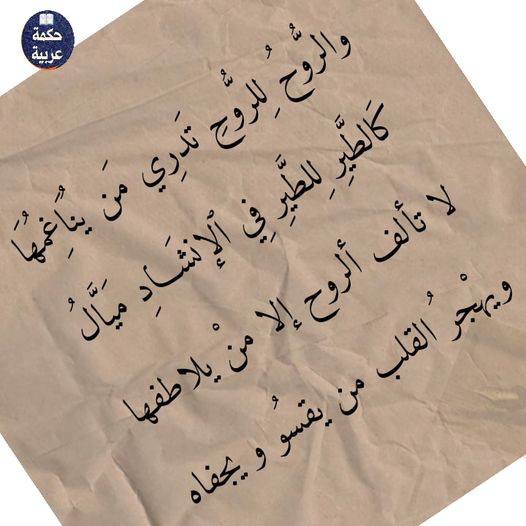 حكمة
عربية
والرُّوحُ لِلرُّوحِ تَدرِي مَن يُنَاغِمُهَا
كَالطَّيرِ لِلطَّيرِ فِي الإنشَادِ مَيَّالُ
لا تألف ألروح إلا منْ يلاطفها
ويهْجرُ القلب من يقسوُ و يجفاه